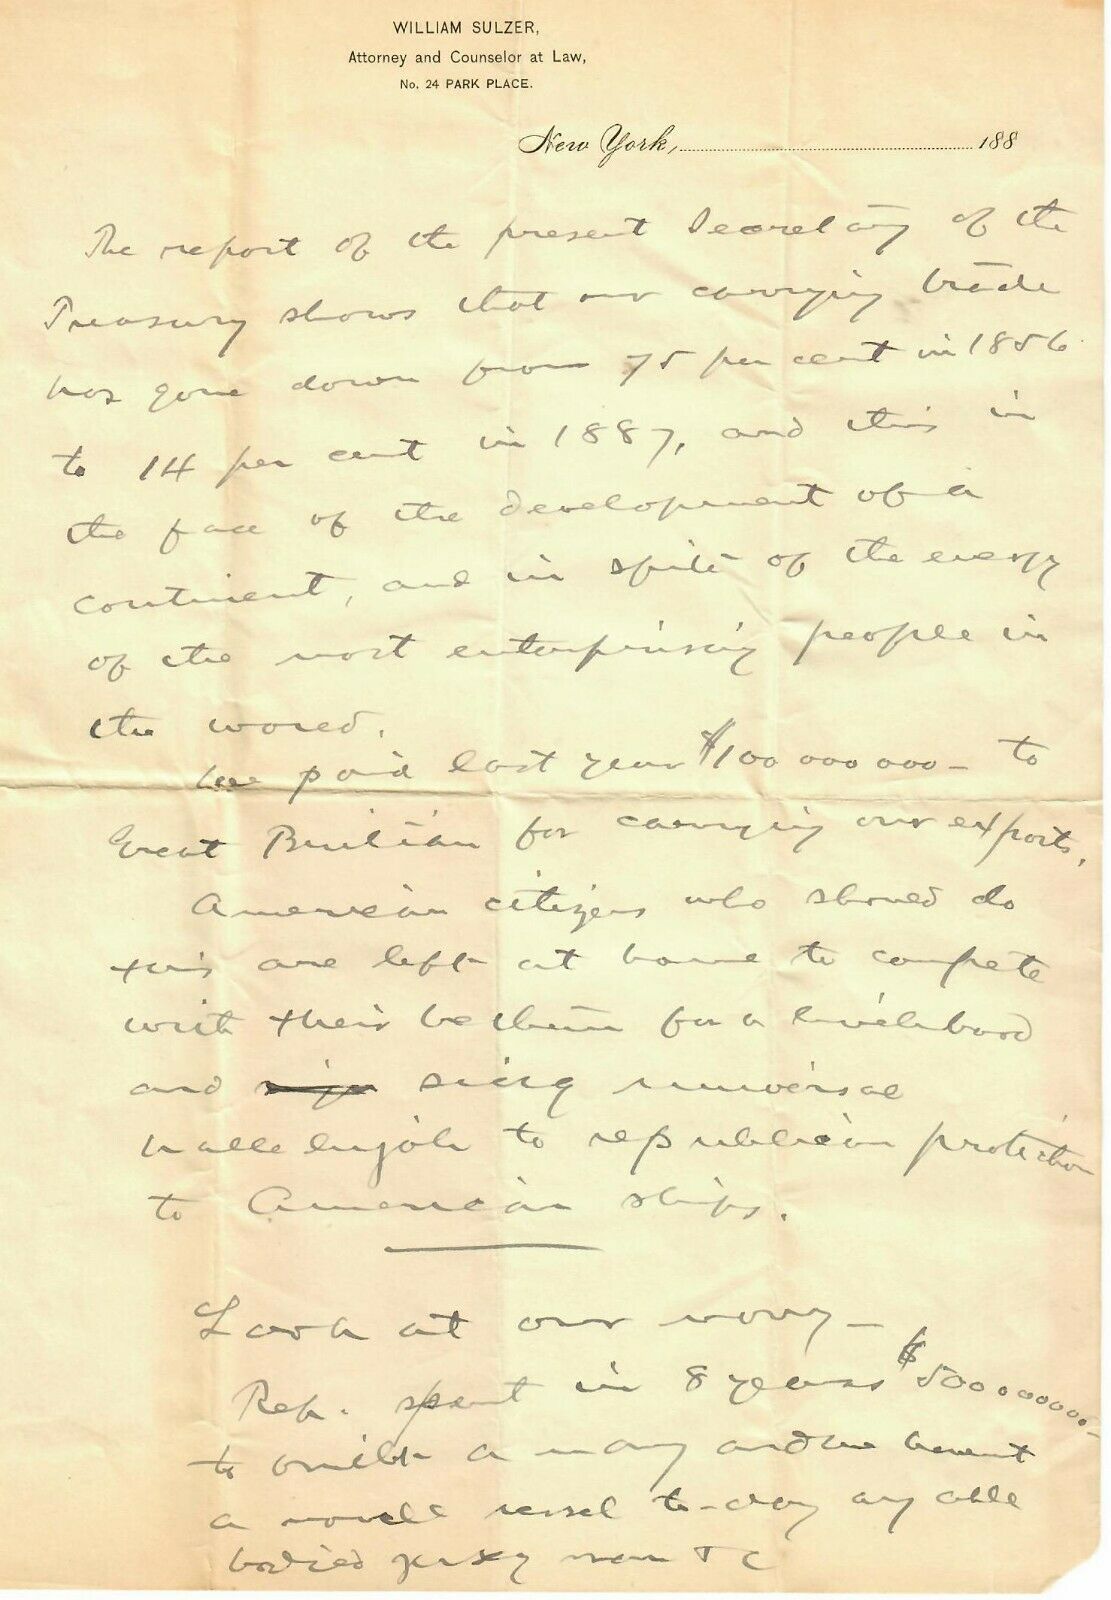 WILLIAM SULZER,
Attorney and Counselor at Law,
No. 24 PARK PLACE.
New York, 188
The report of the present Secretary of the
Treasury shows that our carrying trade
has gone down from 75 per cent in 1856
to 14 per cent in 1887, and this in
the face of the development of a
continent, and in spite of the energy
of the most enterprising people in
the world.
We paid last year $100 000 000 - to
Great Britian for carrying our exports.
American citizens who should do
this are left at home to compete
with their brethern for a livelihood
and sing universal
hallelujah to republican protection
to American ships.
Look at our navy -
Rep. spent in 8 years $500000000 -
to build a navy and we havent
a vessel to-day any able
bodied man